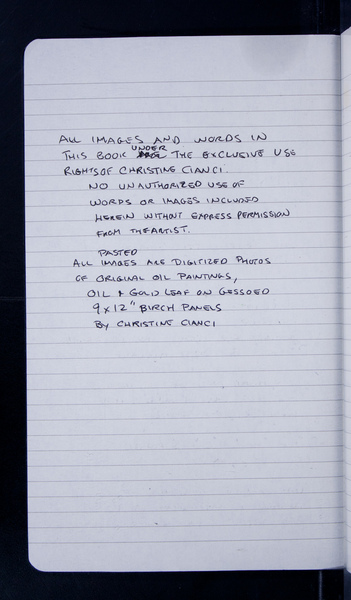 ALL IMAGES AND WORDS IN
THIS BOOK UNDER THE EXCLUSIVE USE
RIGHTS OF CHRISTINE CIANCI.
NO UNAUTHORIZED USE OF
WORDS OR IMAGES INCLUDED
HEREIN WITHOUT EXPRESS PERMISSION
FROM THE ARTIST.
PASTED
ALL IMAGES ARE DIGITIZED PHOTOS
OF ORIGINAL OIL PAINTINGS,
OIL & GOLD LEAF ON GESSOED
9 x 12" BIRCH PANELS
BY CHRISTINE CIANCI